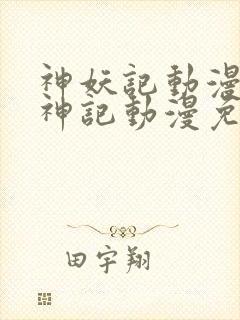 神妖記動漫
神記動漫免
田宇翔